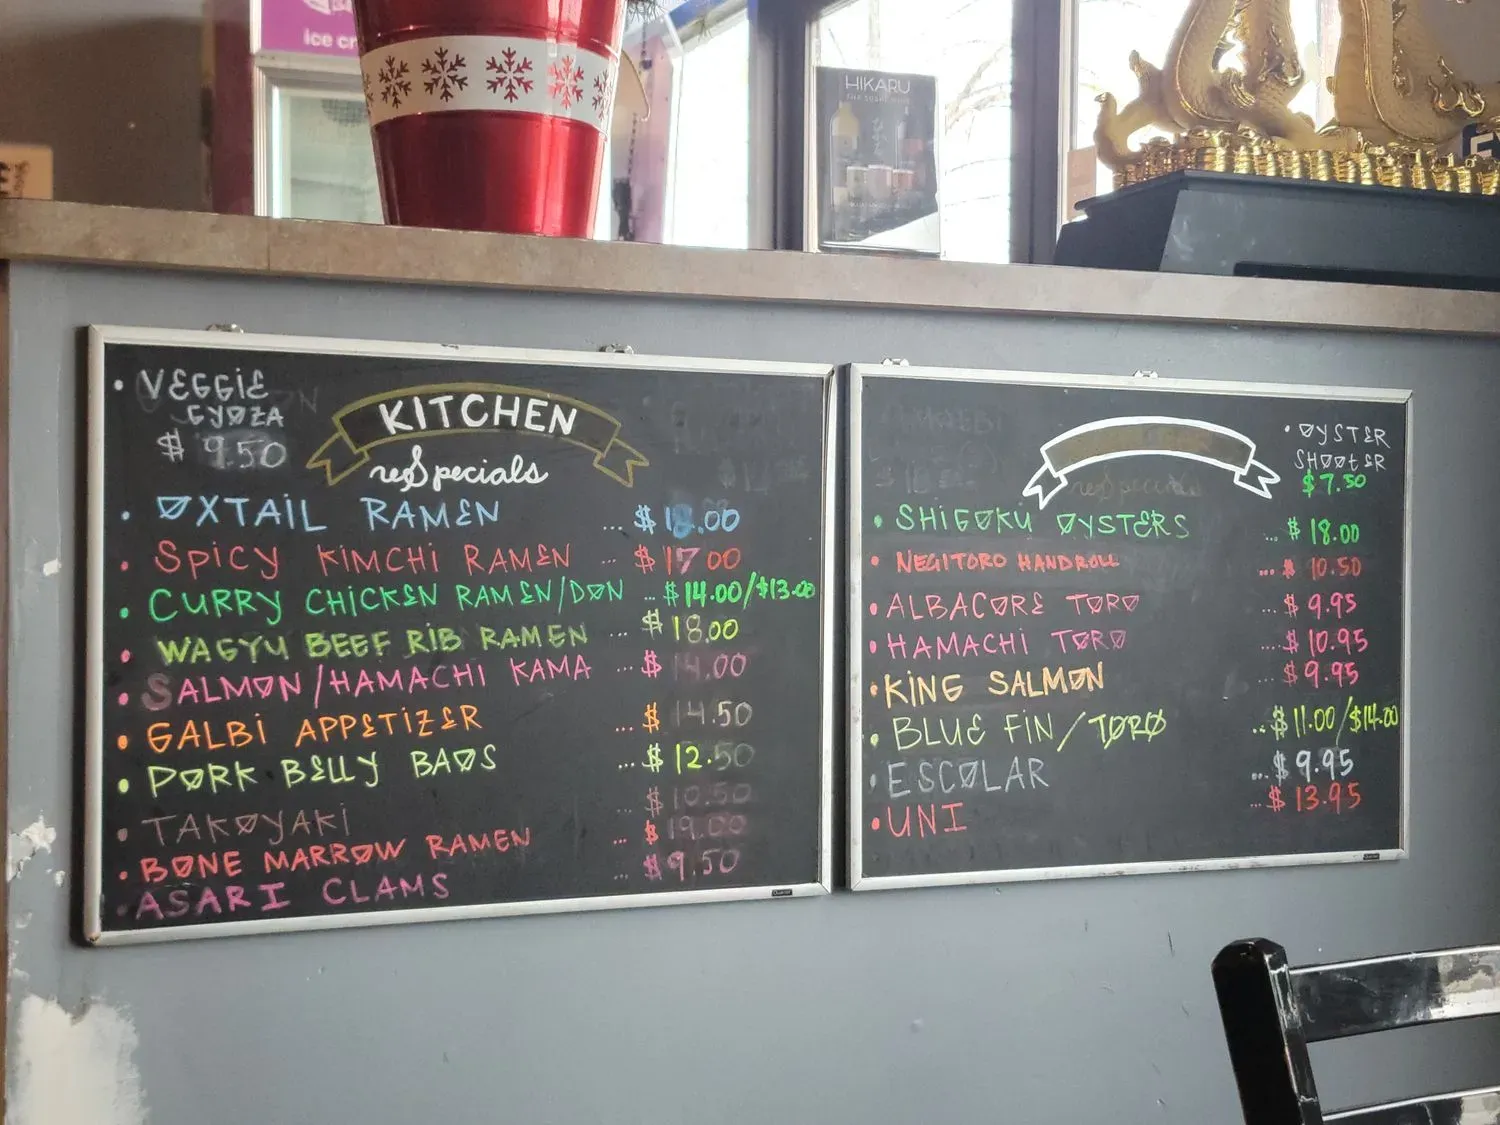 HIKARU
• VEGGIE
GYOZA
$ 9.50
KITCHEN
Specials
• OXTAIL RAMEN ... $ 18.00
• SPICY KIMCHI RAMEN $ 17.00
• CURRY CHICKEN RAMEN/DON ... $14.00/$13.00
• WAGYU BEEF RIB RAMEN ... $ 18.00
• SALMON/HAMACHI KAMA ... $ 14.00
• GALBI APPETIZER ... $ 14.50
• PORK BELLY BAOS ... $ 12.50
• TAKOYAKI $ 10.50
• BONE MARROW RAMEN ... $ 19.00
• ASARI CLAMS ... $ 9.50
• OYSTER
SHOOTER
$7.50
• SHIGOKU OYSTERS ... $ 18.00
• NEGITORO HANDROLL ... $ 10.50
• ALBACORE TORO ... $ 9.95
• HAMACHI TORO ... $ 10.95
• KING SALMON ... $ 9.95
• BLUE FIN/TORO ... $11.00/$14.00
• ESCOLAR ... $ 9.95
• UNI ... $ 13.95